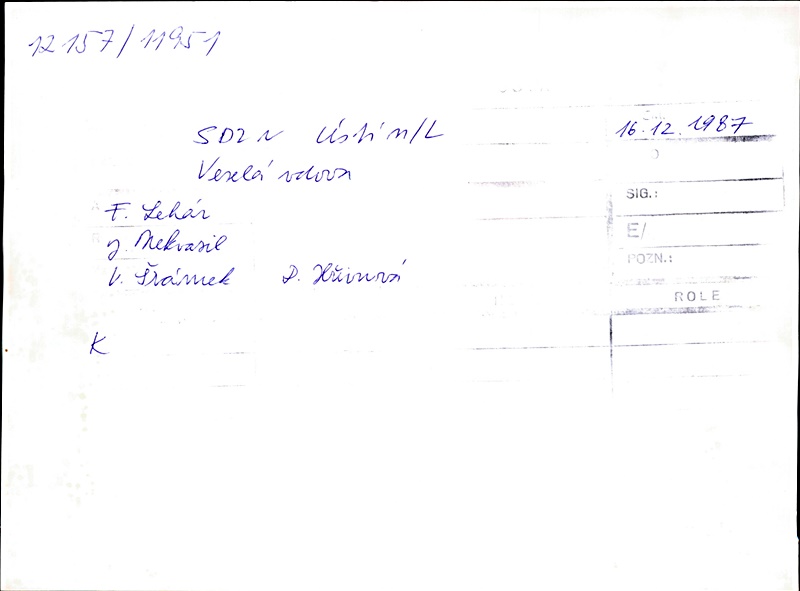 12 157/11951
SDZN Ústí n/L
16.12.1987
Veselá vdova
SIG.:
F. Lehár
E/
J. Mekvasil
POZN.:
V. Šrámek D. Hřivnová
ROLE
K